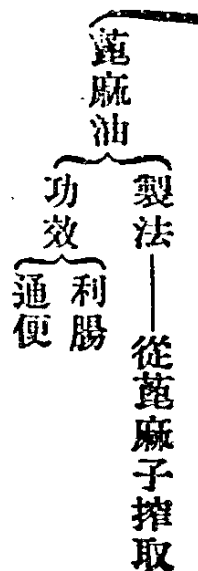 蓖麻油
製法
從蓖麻子搾取
功效
利腸
通便